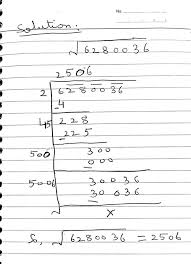 No
Solution:
√6280036
2506
2 6280036
-4
45 228
-225
500 300
-000
5006 30036
-30036
X
So, √6280036 = 2506